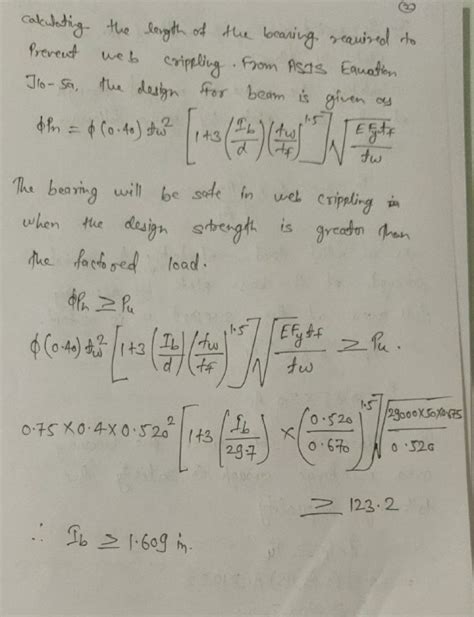 (2)
calculating the length of the bearing required to
Prevent web crippling. From AISC Equation
J10-5a, the design for beam is given as
ϕPn = ϕ(0.40) tw² [1+3(Ib/d)(tw/tf)^1.5] √(EFytf/tw)
The bearing will be safe in web crippling in
when the design strength is greater than
the factored load.
ϕPn ≥ Pu
ϕ(0.40) tw² [1+3(Ib/d)(tw/tf)^1.5] √(EFytf/tw) ≥ Pu.
0.75×0.4×0.520² [1+3(Ib/29.7)×(0.520/0.670)^1.5] √(29000×50×0.675/0.520)
≥ 123.2
∴ Ib ≥ 1.609 in.